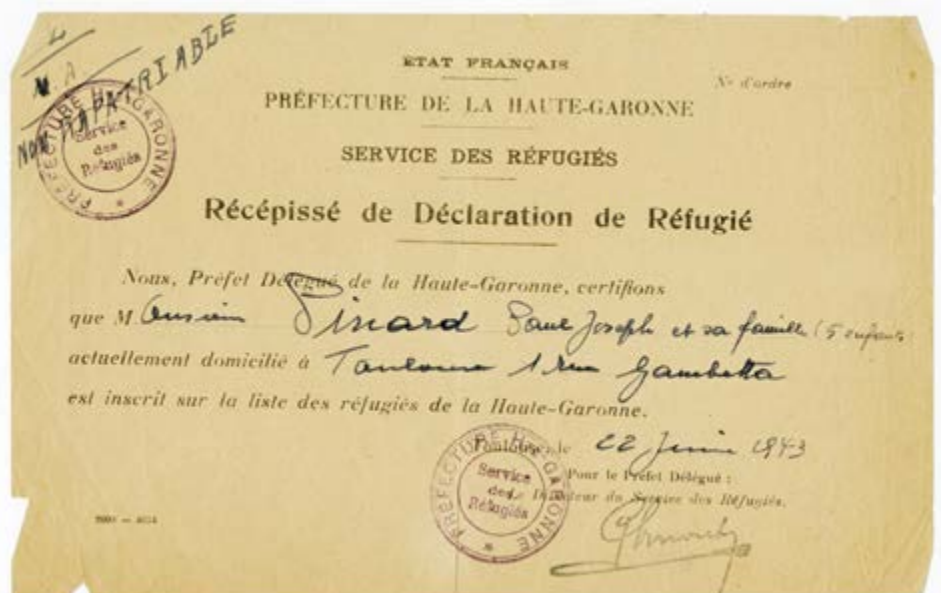 N.A
NON RAPATRIABLE
ÉTAT FRANÇAIS
N° d'ordre
PRÉFECTURE DE LA HAUTE-GARONNE
SERVICE DES RÉFUGIÉS
PRÉFECTURE H-GARONNE
Service
des
Réfugiés
Récépissé de Déclaration de Réfugié
Nous, Préfet Délégué de la Haute-Garonne, certifions
que M. Pinard Paul Joseph et sa famille (5 enfants)
actuellement domicilié à Toulouse 1 rue Gambetta
est inscrit sur la liste des réfugiés de la Haute-Garonne.
Toulouse, le 22 Juin 1943
Pour le Préfet Délégué :
Le Directeur du Service des Réfugiés.
PRÉFECTURE H-GARONNE
Service
des
Réfugiés